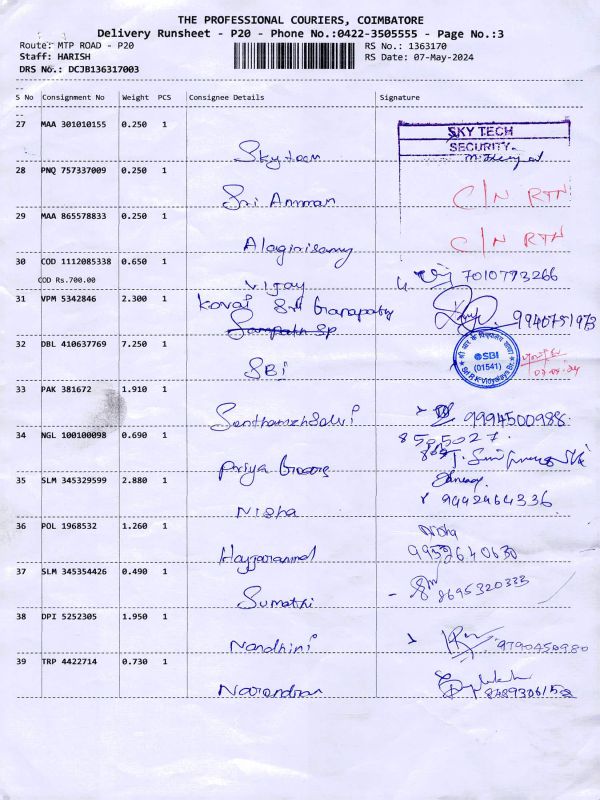 THE PROFESSIONAL COURIERS, COIMBATORE
Delivery Runsheet - P20 - Phone No.:0422-3505555 - Page No.:3
Route: MTP ROAD - P20 RS No.: 1363170
Staff: HARISH RS Date: 07-May-2024
DRS No.: DCJB136317003
S No Consignment No Weight PCS Consignee Details Signature
27 MAA 301010155 0.250 1
SKY TECH
SECURITY
Skyteam
28 PNQ 757337009 0.250 1
C/N RTN
Sri Amman
29 MAA 865578833 0.250 1
C/N RTN
Alagirisamy
30 COD 1112085338 0.650 1
COD Rs.700.00
Vijay 7010773266
31 VPM 5342846 2.300 1 Kovai Sri Ganapathy
9940751973
32 DBL 410637769 7.250 1
SBI
SBI
(01541)
33 PAK 381672 1.910 1
9994500988
34 NGL 100100098 0.690 1
8505027
Priya
35 SLM 345329599 2.880 1
Nisha 9442464336
36 POL 1968532 1.260 1
Nisha
9952640630
37 SLM 345354426 0.490 1
Sumathi 8695320333
38 DPI 5252305 1.950 1
Nandhini 9790450980
39 TRP 4422714 0.730 1
Narendran